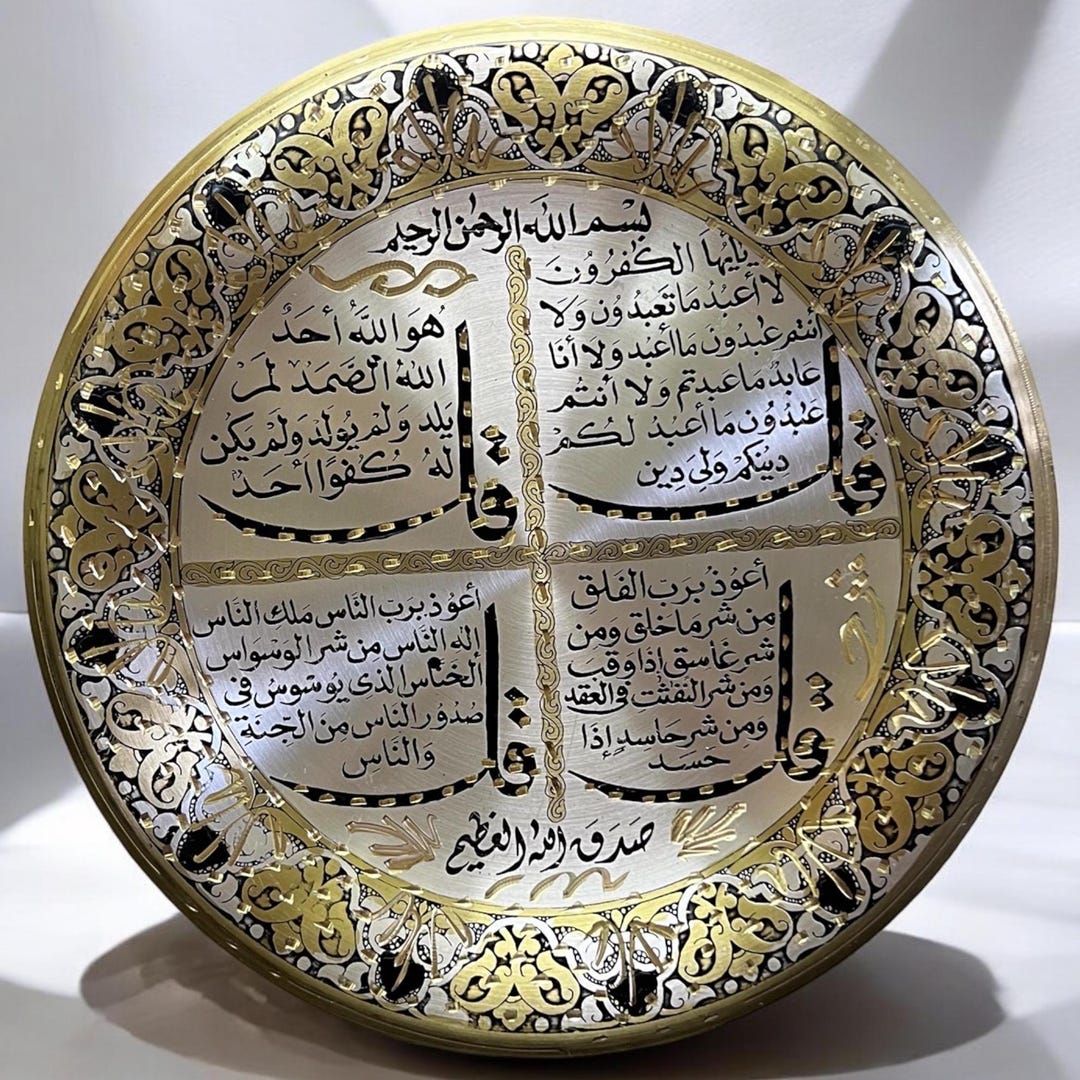 بسم الله الرحمن الرحيم
قل
يايها الكفرون
لا أعبد ما تعبدون ولا
أنتم عبدون ما أعبد ولا أنا
عابد ما عبدتم ولا أنتم
عبدون ما أعبد لكم
دينكم ولي دين
قل
هُوَ اللهُ أَحَدٌ
الله الصمد لم
يلد ولم يولد ولم يكن
له كفوا أحد
قل
أعوذ برب الفلق
من شر ما خلق ومن
شر غاسق إذا وقب
ومن شر النفثت في العقد
ومن شر حاسدٍ إذا
حسد
قل
أعوذ برب الناس ملك الناس
إله الناس من شر الوسواس
الخناس الذي يوسوس في
صدور الناس من الجنة
والناس
صدق الله العظيم